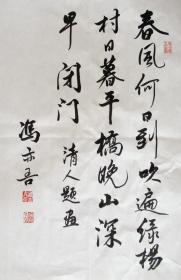 春风何日到吹遍绿杨
村日暮平桥晚山深
早闭门 清人题画
冯亦吾